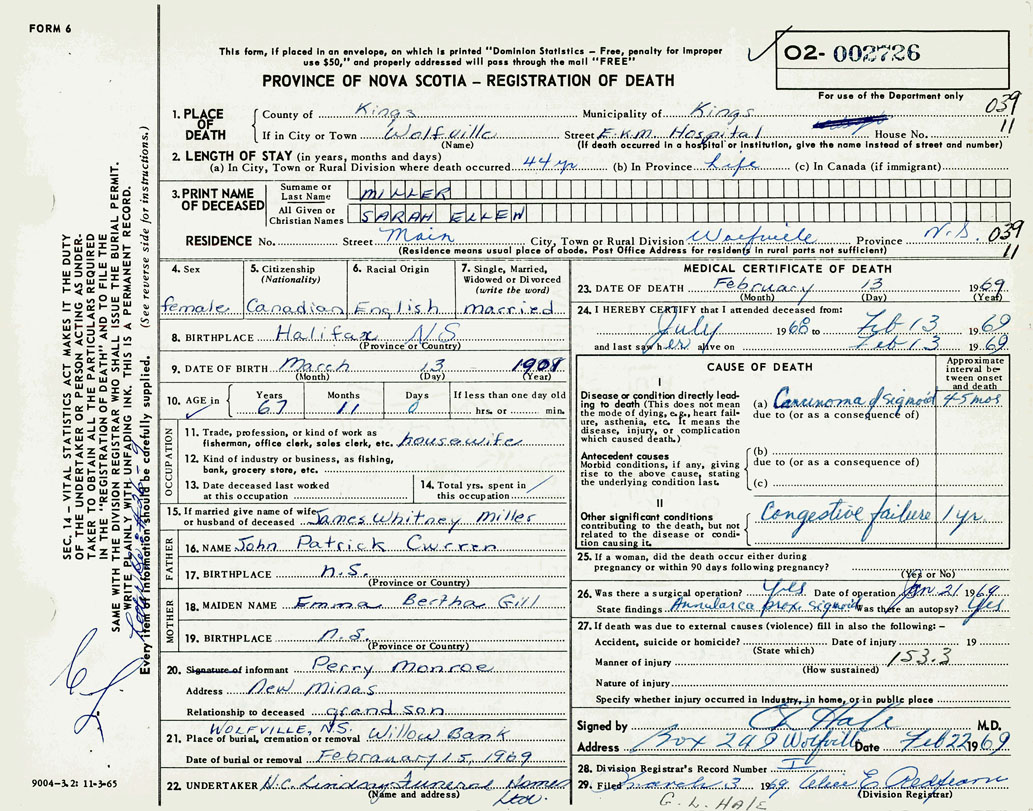 FORM 6
This form, if placed in an envelope, on which is printed "Dominion Statistics – Free, penalty for improper
use $50," and properly addressed will pass through the mail "FREE"
O2- 002726
PROVINCE OF NOVA SCOTIA – REGISTRATION OF DEATH
For use of the Department only
039
11
1. PLACE OF DEATH
County of Kings Municipality of Kings
If in City or Town Wolfville Street E.K.M. Hospital House No.
(Name) (If death occurred in a hospital or institution, give the name instead of street and number)
2. LENGTH OF STAY (in years, months and days)
(a) In City, Town or Rural Division where death occurred 44 yr (b) In Province Life (c) In Canada (if immigrant)
3. PRINT NAME OF DECEASED
Surname or Last Name MILLER
All Given or Christian Names SARAH ELLEN
RESIDENCE No. Street Main City, Town or Rural Division Wolfville Province N.S. 039
(Residence means usual place of abode. Post Office Address for residents in rural parts not sufficient) 11
4. Sex female
5. Citizenship (Nationality) Canadian
6. Racial Origin English
7. Single, Married, Widowed or Divorced (write the word) married
8. BIRTHPLACE Halifax N.S
(Province or Country)
9. DATE OF BIRTH March 13
(Month) (Day) (Year)
10. AGE in Years Months Days If less than one day old
67 11 0 hrs. or min.
OCCUPATION
11. Trade, profession, or kind of work as
fisherman, office clerk, sales clerk, etc. housewife
12. Kind of industry or business, as fishing,
bank, grocery store, etc.
13. Date deceased last worked
at this occupation
14. Total yrs. spent in
this occupation
15. If married give name of wife
or husband of deceased James Whitney Miller
FATHER
16. NAME John Patrick Curren
17. BIRTHPLACE N.S.
(Province or Country)
MOTHER
18. MAIDEN NAME Emma Bertha Gill
19. BIRTHPLACE N.S.
(Province or Country)
20. Signature of informant Perry Monroe
Address New Minas
Relationship to deceased grandson
WOLFVILLE, N.S.
21. Place of burial, cremation or removal Willow Bank
Date of burial or removal February 15, 1969
22. UNDERTAKER N.C. Lindsay Funeral Homes
(Name and address) Ltd.
MEDICAL CERTIFICATE OF DEATH
23. DATE OF DEATH February 13 1969
(Month) (Day) (Year)
24. I HEREBY CERTIFY that I attended deceased from:
July 1968 to Feb 13 1969
and last saw her alive on Feb 13 1969
CAUSE OF DEATH
Approximate interval between onset and death
I
Disease or condition directly leading to death (This does not mean
the mode of dying, e.g., heart failure, asthenia, etc. It means the
disease, injury, or complication
which caused death.)
(a) Carcinoma of Sigmoid 4-5 mos
due to (or as a consequence of)
Antecedent causes
Morbid conditions, if any, giving
rise to the above cause, stating
the underlying condition last.
(b)
due to (or as a consequence of)
(c)
II
Other significant conditions
contributing to the death, but not
related to the disease or condition causing it.
Congestive failure 1 yr.
25. If a woman, did the death occur either during
pregnancy or within 90 days following pregnancy?
(Yes or No)
26. Was there a surgical operation? Yes Date of operation Jan 21 1969
State findings Annular ca prox. sigmoid Was there an autopsy? Yes
27. If death was due to external causes (violence) fill in also the following: –
Accident, suicide or homicide? Date of injury 19
(State which)
Manner of injury 153.3
(How sustained)
Nature of injury
Specify whether injury occurred in Industry, in home, or in public place
Signed by C L Hale M.D.
Address Box 249 Wolfville Date Feb 22 1969
28. Division Registrar's Record Number
29. Filed March 3 1969
(Division Registrar)
G. L. HALE
SEC. 14 – VITAL STATISTICS ACT MAKES IT THE DUTY
OF THE UNDERTAKER OR PERSON ACTING AS UNDER-
TAKER TO OBTAIN ALL THE PARTICULARS REQUIRED
IN THE "REGISTRATION OF DEATH" AND TO FILE THE
SAME WITH THE DIVISION REGISTRAR WHO SHALL ISSUE THE BURIAL PERMIT.
WRITE PLAINLY WITH UNFADING INK. THIS IS A PERMANENT RECORD.
Every item of information should be carefully supplied. (See reverse side for instructions.)
9004–3.2: 11-3-65